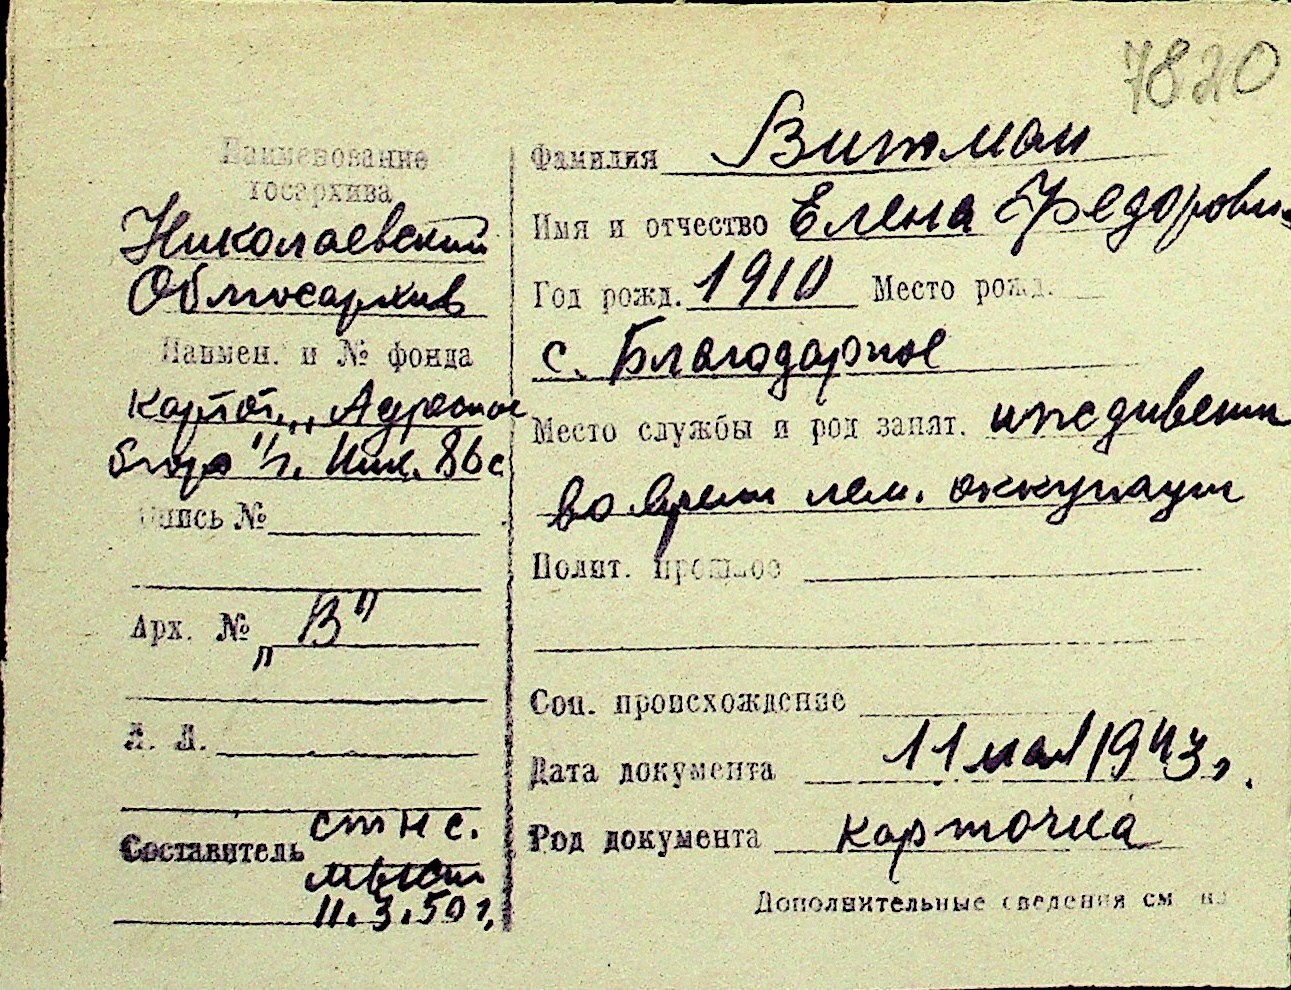 7820
Наименование
госархива
Николаевский
Облгосархив
Наимен. и № фонда
Картот. „Адресное
бюро" г. Ник. 86с
Опись №
Арх. № „В"
Л. Л.
Составитель ст н с.
11.3.50 г,
Фамилия Витман
Имя и отчество Елена Федоровн
Год рожд. 1910 Место рожд.
с. Благодарное
Место службы и род занят. иждивенц
во время нем. оккупации
Полит. прошлое
Соц. происхождение
Дата документа 11 мая 1943 г.
Род документа карточка
Дополнительные сведения см на